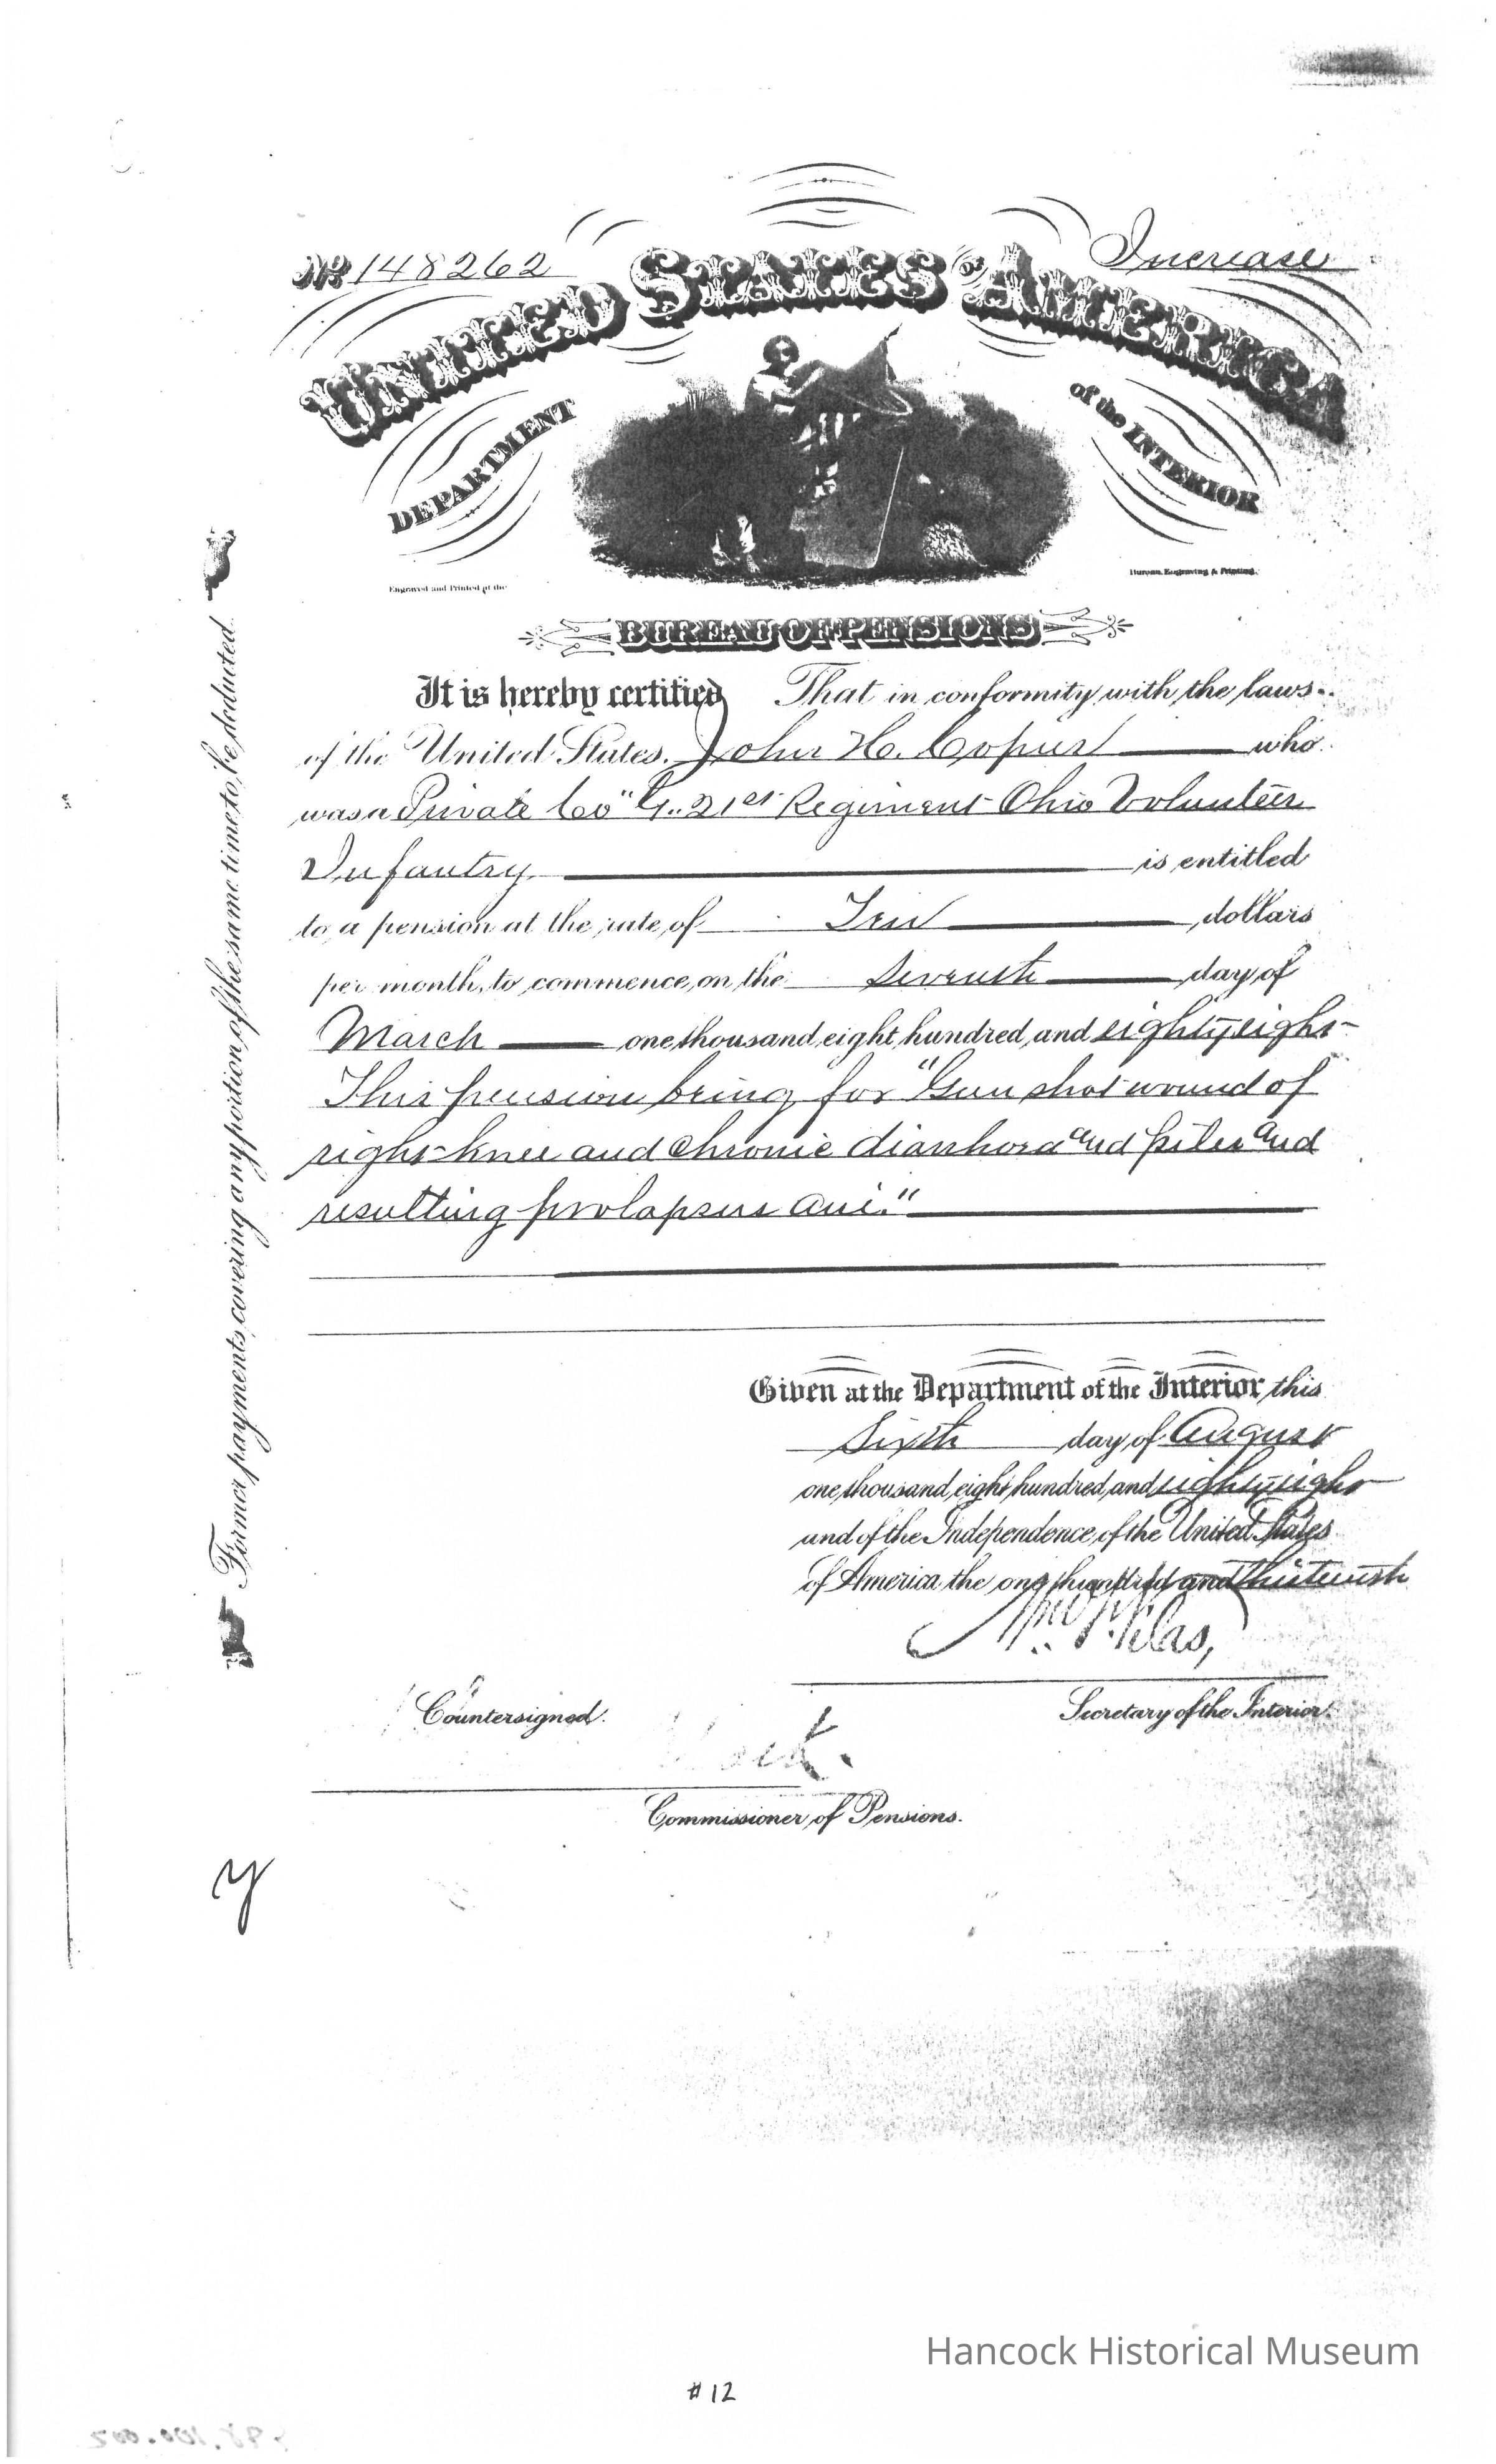 No 148262
Increase
UNITED STATES OF AMERICA
DEPARTMENT of the INTERIOR
Engraved and Printed at the
Bureau, Engraving & Printing.
BUREAU OF PENSIONS
It is hereby certified That in conformity with the laws
of the United States, John H. Copus who
was a Private Co "G" 21st Regiment Ohio Volunteer
Infantry is entitled
to a pension at the rate of Ten dollars
per month, to commence on the seventh day of
March one thousand eight hundred and eighty eight
This pension being for "Gun shot wound of
right knee and chronic diarrhoea and piles and
resulting prolapsus ani."
Former payments covering any portion of the same time to be deducted.
Given at the Department of the Interior this
Sixth day of August
one thousand eight hundred and eighty eight
and of the Independence of the United States
of America the one hundred and thirteenth
Wm F. Vilas,
Secretary of the Interior.
Countersigned.
Commissioner of Pensions.
y
Hancock Historical Museum
#12